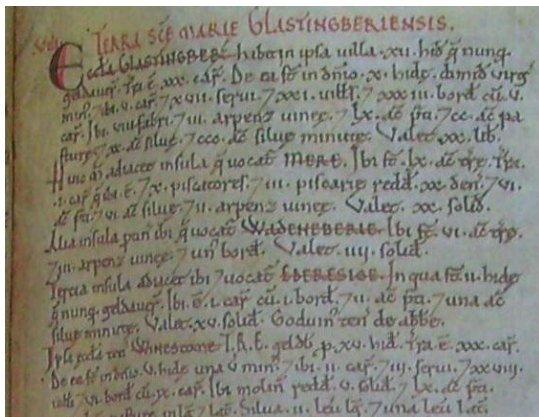 TERRA SCE MARIE GLASTINGBERIENSIS.
Eccla GLASTINGBERĒ. habet in ipsa villa .xii. hid̄ q̄ nunq̄
geldauer̄. Tr̄a. ē .xxx. car̄. De ea st̄ in dn̄io .x. hidę dimid̄ virg̃
min⁹. ibi .v. car̄. ⁊ xvii. serui. ⁊ xxi. uilts̄. ⁊ xxxiii. bord̄ cū .v.
car̄. Ibi viii. fabri. ⁊ iii. arpenz uineę. ⁊ lx. ac̄ p̄ti. ⁊ cc. ac̄ pa
sturę. ⁊ xx. ac̄ siluę. ⁊ ccc. ac̄ siluę minutę. Valet xx. lib̄.
Huic m̄ adiacet insula q̄ uocat̃ MERE. Ibi st̄ .lx. ac̄ tr̄ę. Tr̄a.
.i. car̄ q̄ ibi. ē. ⁊ x. piscatores. ⁊ iii. piscarię redd̄ .xx. den̄. ⁊ vi.
ac̄ p̄ti. ⁊ vi. ac̄ siluę. ⁊ ii. arpenz uineę. Valet .xx. solid̄.
Alia insula ptin̄ ibi q̄ uocat̃ WADENEBERIE. Ibi st̄ .vi. ac̄ tr̄ę.
⁊ iii. arpenz uineę. ⁊ un⁹ bord̄. Valet .iiii. solid̄.
Tercia insula adiacet ibi ⁊ uocat̃ EDERESIGE. In qua st̄ .ii. hidę
q̄ nunq̄ geldauer̄. Ibi. ē .i. car̄ cū .i. bord̄. ⁊ ii. ac̄ p̄ti. ⁊ una ac̄
siluę minutę. Valet .xv. solid̄. Goduin⁹ ten̄ de abbe.
Ipsa eccła ten̄ WINESCOME. T.R.E. geldb̄ p .xv. hid̄. Tr̄a. ē .xxx. car̄.
De ea st̄ in dn̄io .v. hidę una v̄ min⁹. ⁊ ibi .ii. car̄. ⁊ iii. serui. ⁊ xxviii.
uilti ⁊ vi. bord̄ cū .ix. car̄. Ibi molin̄ redd̄ .v. solid̄. ⁊ lx. ac̄ p̄ti.
pasturę in lḡ. ⁊ lat̄. Silua .ii. leu lḡ. ⁊ una leu lat̄.